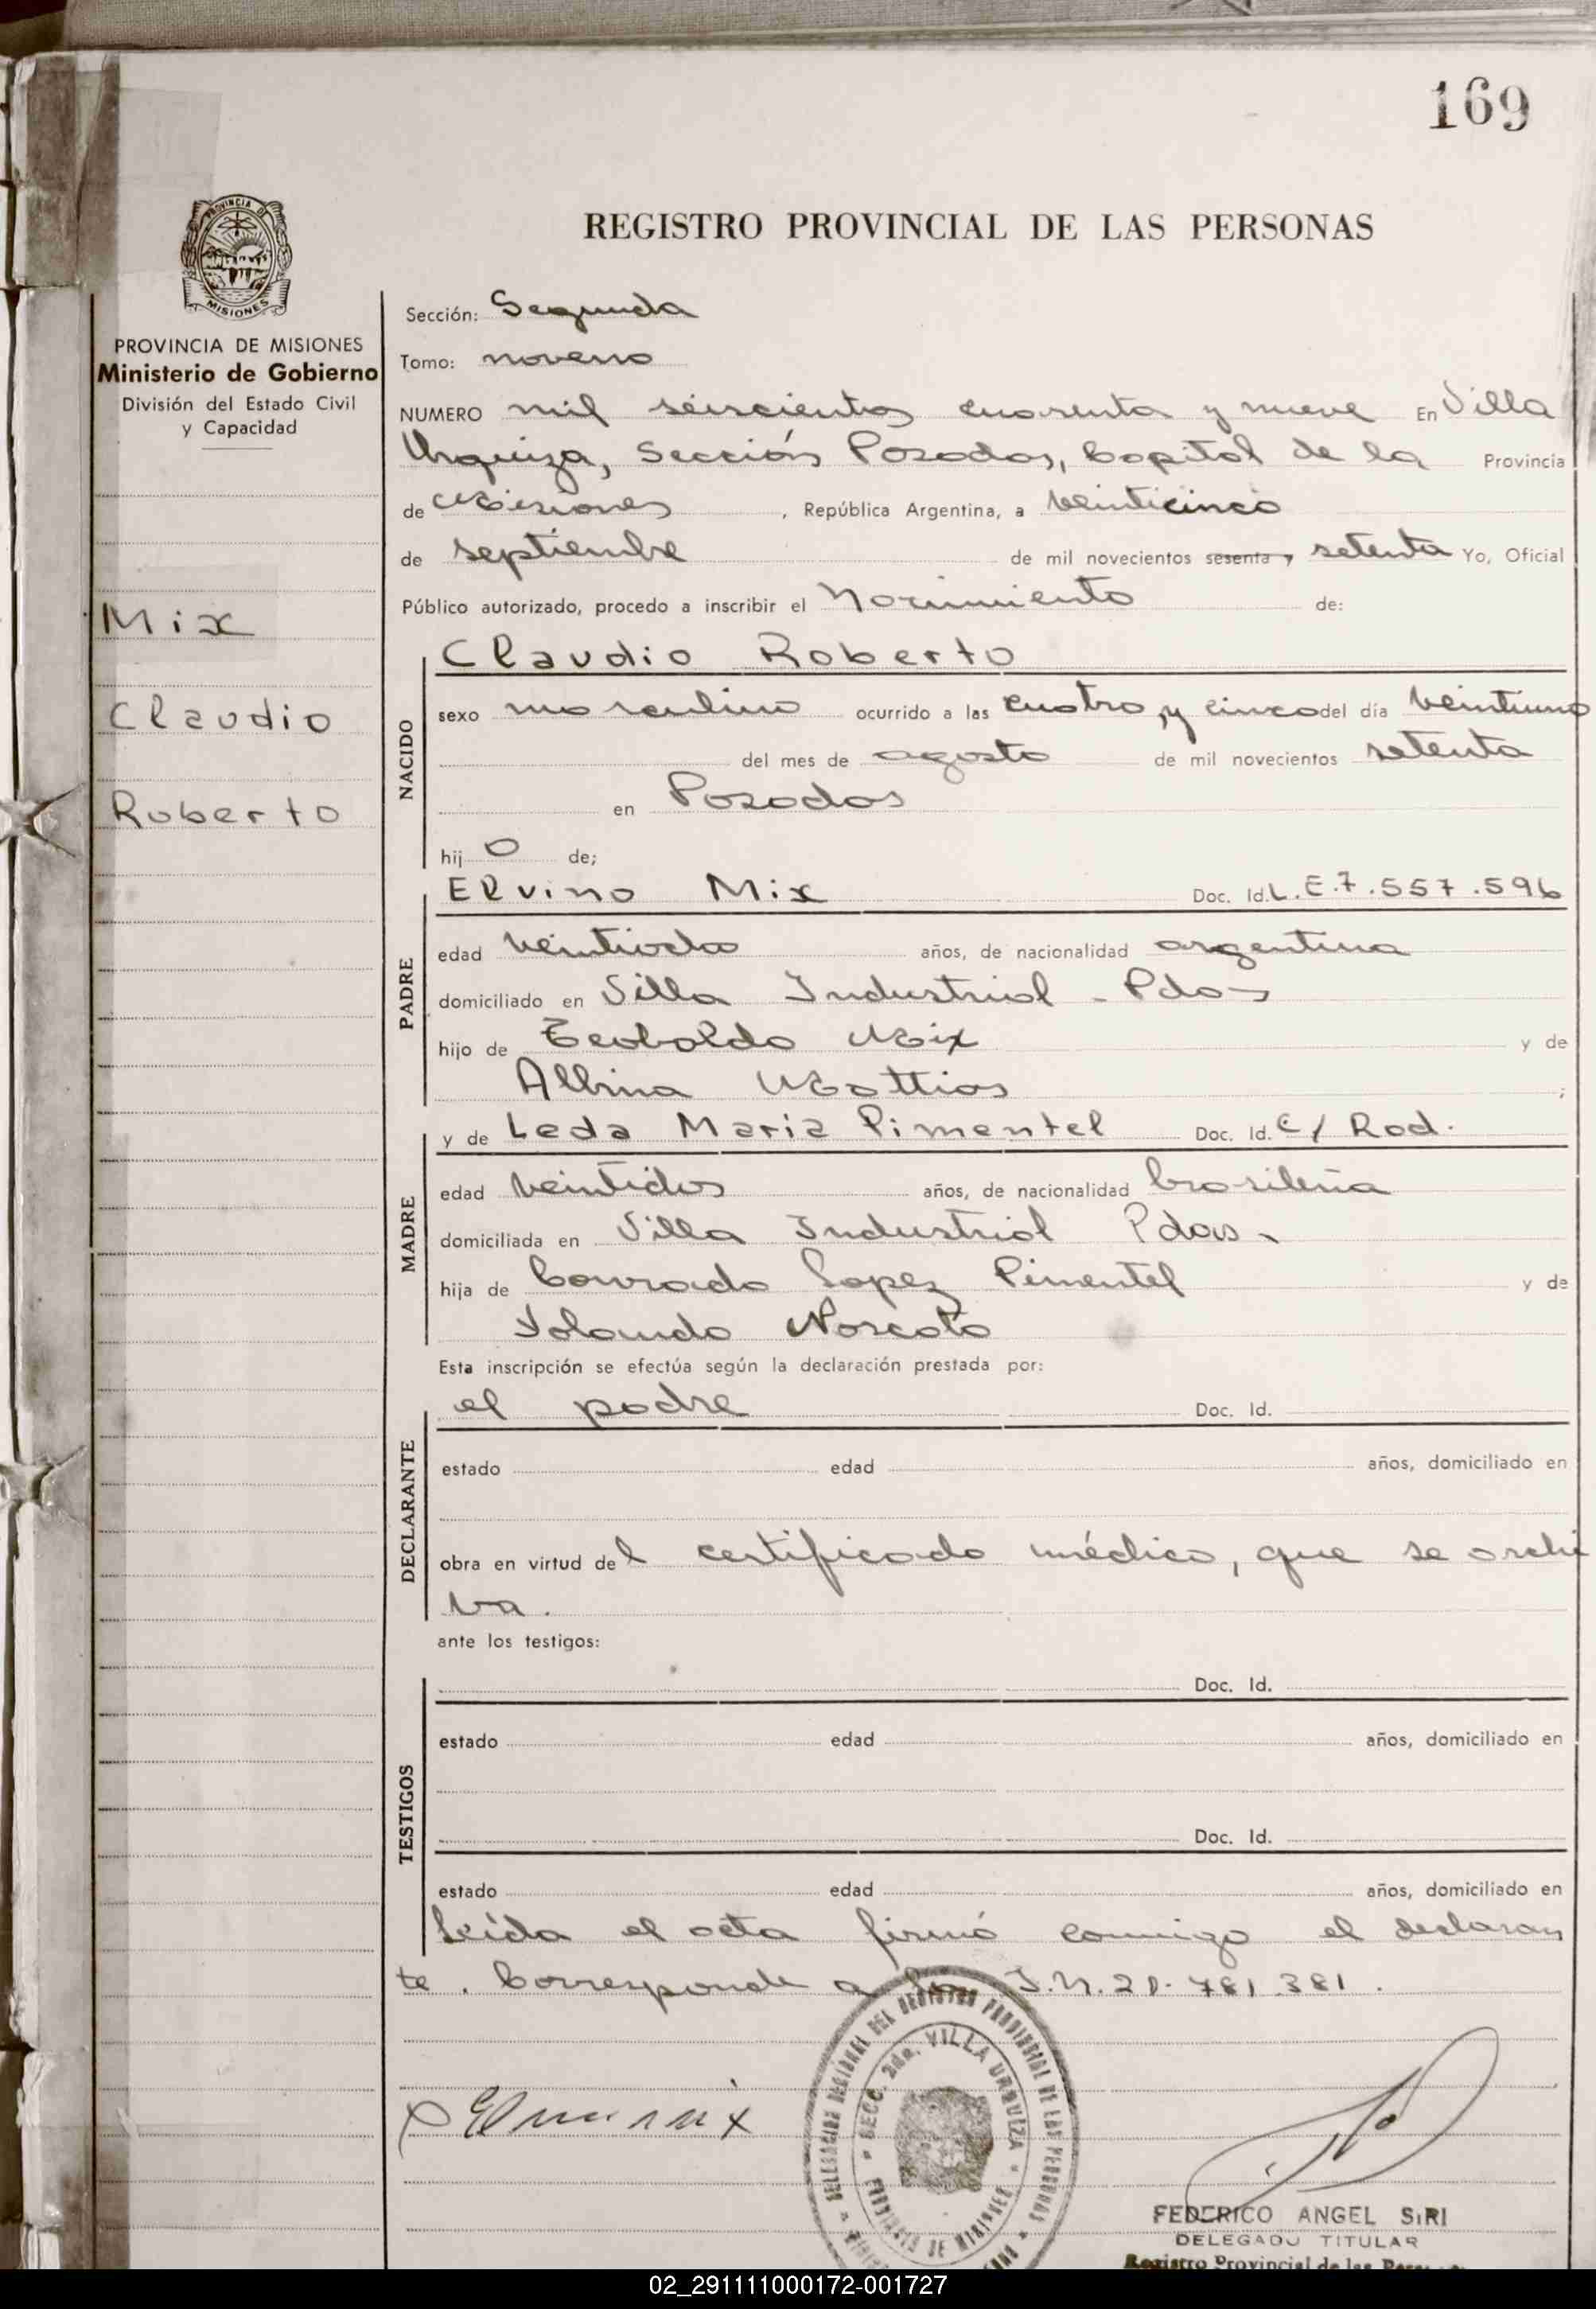 169
REGISTRO PROVINCIAL DE LAS PERSONAS
PROVINCIA DE
MISIONES
PROVINCIA DE MISIONES
Ministerio de Gobierno
División del Estado Civil
y Capacidad
Mix
Claudio
Roberto
Sección: Segunda
Tomo: noveno
NUMERO mil seiscientos cuarenta y nueve En Villa
Urquiza, Sección Posadas, Capital de la Provincia
de Misiones, República Argentina, a veinticinco
de septiembre de mil novecientos sesenta y setenta Yo, Oficial
Público autorizado, procedo a inscribir el Nacimiento de:
NACIDO
Claudio Roberto
sexo masculino ocurrido a las cuatro y cinco del día veintiuno
del mes de agosto de mil novecientos setenta
en Posadas
hij o de;
PADRE
Elvino Mix Doc. Id. L.E.7.557.596
edad veintiocho años, de nacionalidad argentina
domiciliado en Villa Industrial - Pdas
hijo de Teobaldo Mix y de
Albina Mattias ;
MADRE
y de Leda Maria Pimentel Doc. Id. C/ Rod.
edad veintidos años, de nacionalidad brasileña
domiciliada en Villa Industrial Pdas -
hija de Conrado Lopez Pimentel y de
Yolanda
Esta inscripción se efectúa según la declaración prestada por:
DECLARANTE
el padre Doc. Id.
estado edad años, domiciliado en
obra en virtud del certificado médico, que se archi
va.
ante los testigos:
TESTIGOS
Doc. Id.
estado edad años, domiciliado en
Doc. Id.
estado edad años, domiciliado en
Leída el acta firmó conmigo el declaran
te. Corresponde a la I.N. 21.781.381.
DELEGACION REGIONAL DEL REGISTRO PROVINCIAL DE LAS PERSONAS
SECC. 2da. VILLA URQUIZA
PROVINCIA DE MISIONES
FEDERICO ANGEL SIRI
DELEGADO TITULAR
Registro Provincial de las
02_291111000172-001727